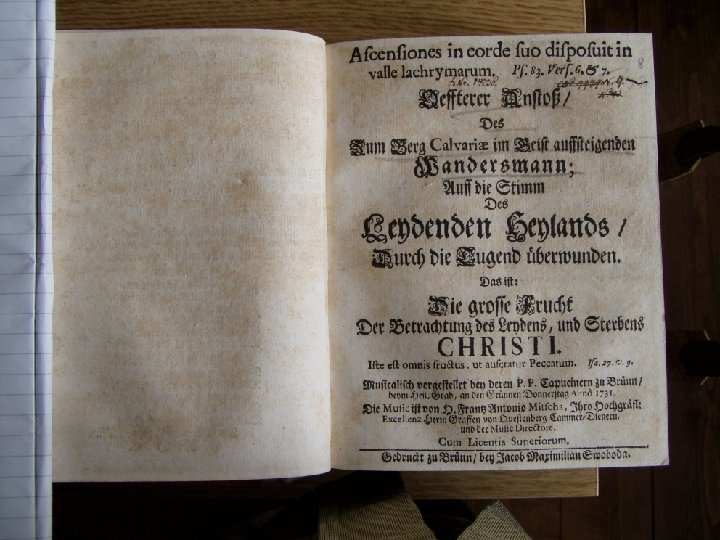 Ascensiones in corde suo disposuit in
valle lachrymarum. Ps. 83. Vers. 6. & 7.
Oeffterer Anstoß /
Des
Zum Berg Calvariæ im Geist auffsteigenden
Wandersmann;
Auff die Stimm
Des
Leydenden Heylands /
Durch die Tugend überwunden.
Das ist:
Die grosse Frucht
Der Betrachtung des Leydens, und Sterbens
CHRISTI.
Iste est omnis fructus, ut auferatur Peccatum. Isa. 27. v. 9.
Musicalisch vorgestellet bey deren P. P. Capucinern zu Brünn /
beym Heil. Grab, an den Grünnen Donnerstag Anno 1731.
Die Music ist von H. Frantz Antonio Mitscha, Ihro Hochgräfl:
Excellenz Herrn Graffen von Questenberg Cammer-Dienern,
und der Music Directore.
Cum Licentia Superiorum.
Gedruckt zu Brünn / bey Jacob Maximilian Swoboda.